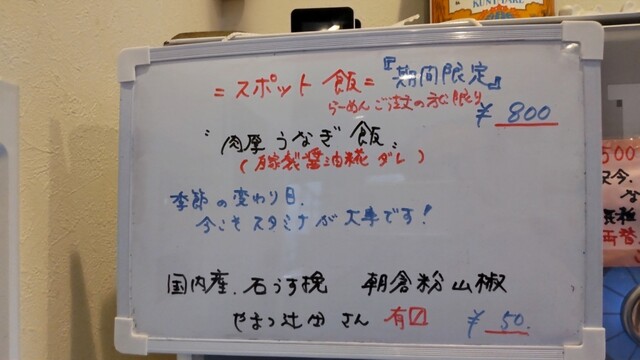 KUNI TAKE
=スポット飯= 『期間限定』
らーめんご注文の方に限り
¥800
"肉厚うなぎ飯"
(自家製醤油糀ダレ)
季節の変わり目、
今こそスタミナが大事です!
国内産、石うす挽 朝倉粉山椒
やまつ辻田さん 有〼 ¥50
500
両替